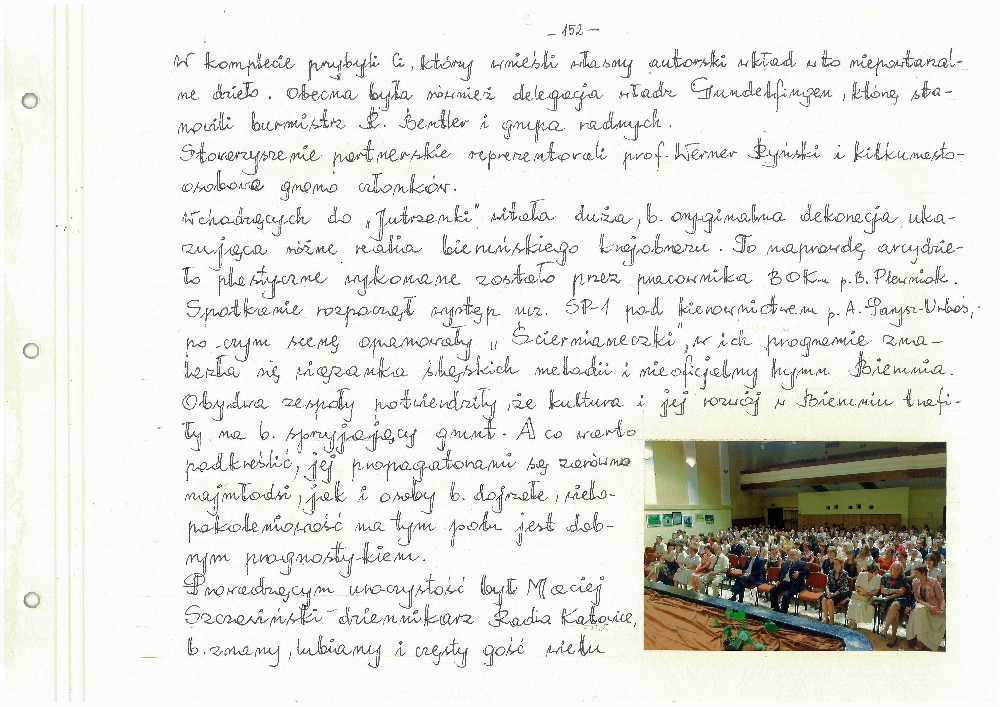 – 152 –
W komplecie przybyli Ci, którzy wnieśli własny autorski wkład w to niepowtarzal-
ne dzieło. Obecna była również delegacja władz Gundelfingen, którą sta-
nowili burmistrz R. Bentler i grupa radnych.
Stowarzyszenie partnerskie reprezentowali prof. Werner Ryński i kilkunasto-
osobowe grono członków.
Wchodzących do „Jutrzenki" witała duża, b. oryginalna dekoracja, uka-
zująca różne realia bieruńskiego krajobrazu. To naprawdę arcydzie-
ło plastyczne wykonane zostało przez pracownika BOK-u p. B. Plewniok.
Spotkanie rozpoczął występ ucz. SP-1 pod kierownictwem p. A. Parysz-Urbaś,
po czym scenę opanowały „Ściernianeczki", w ich programie zna-
lazła się wiązanka śląskich melodii i nieoficjalny hymn Bierunia.
Obydwa zespoły potwierdziły, że kultura i jej rozwój w Bieruniu trafi-
ły na b. sprzyjający grunt. A co warto
podkreślić, jej propagatorami są zarówno
najmłodsi, jak i osoby b. dojrzałe, wielo-
pokoleniowość na tym polu jest dob-
rym prognostykiem.
Prowadzącym uroczystość był Maciej
Szczesiński – dziennikarz Radia Katowice,
b. znany, lubiany i częsty gość wielu